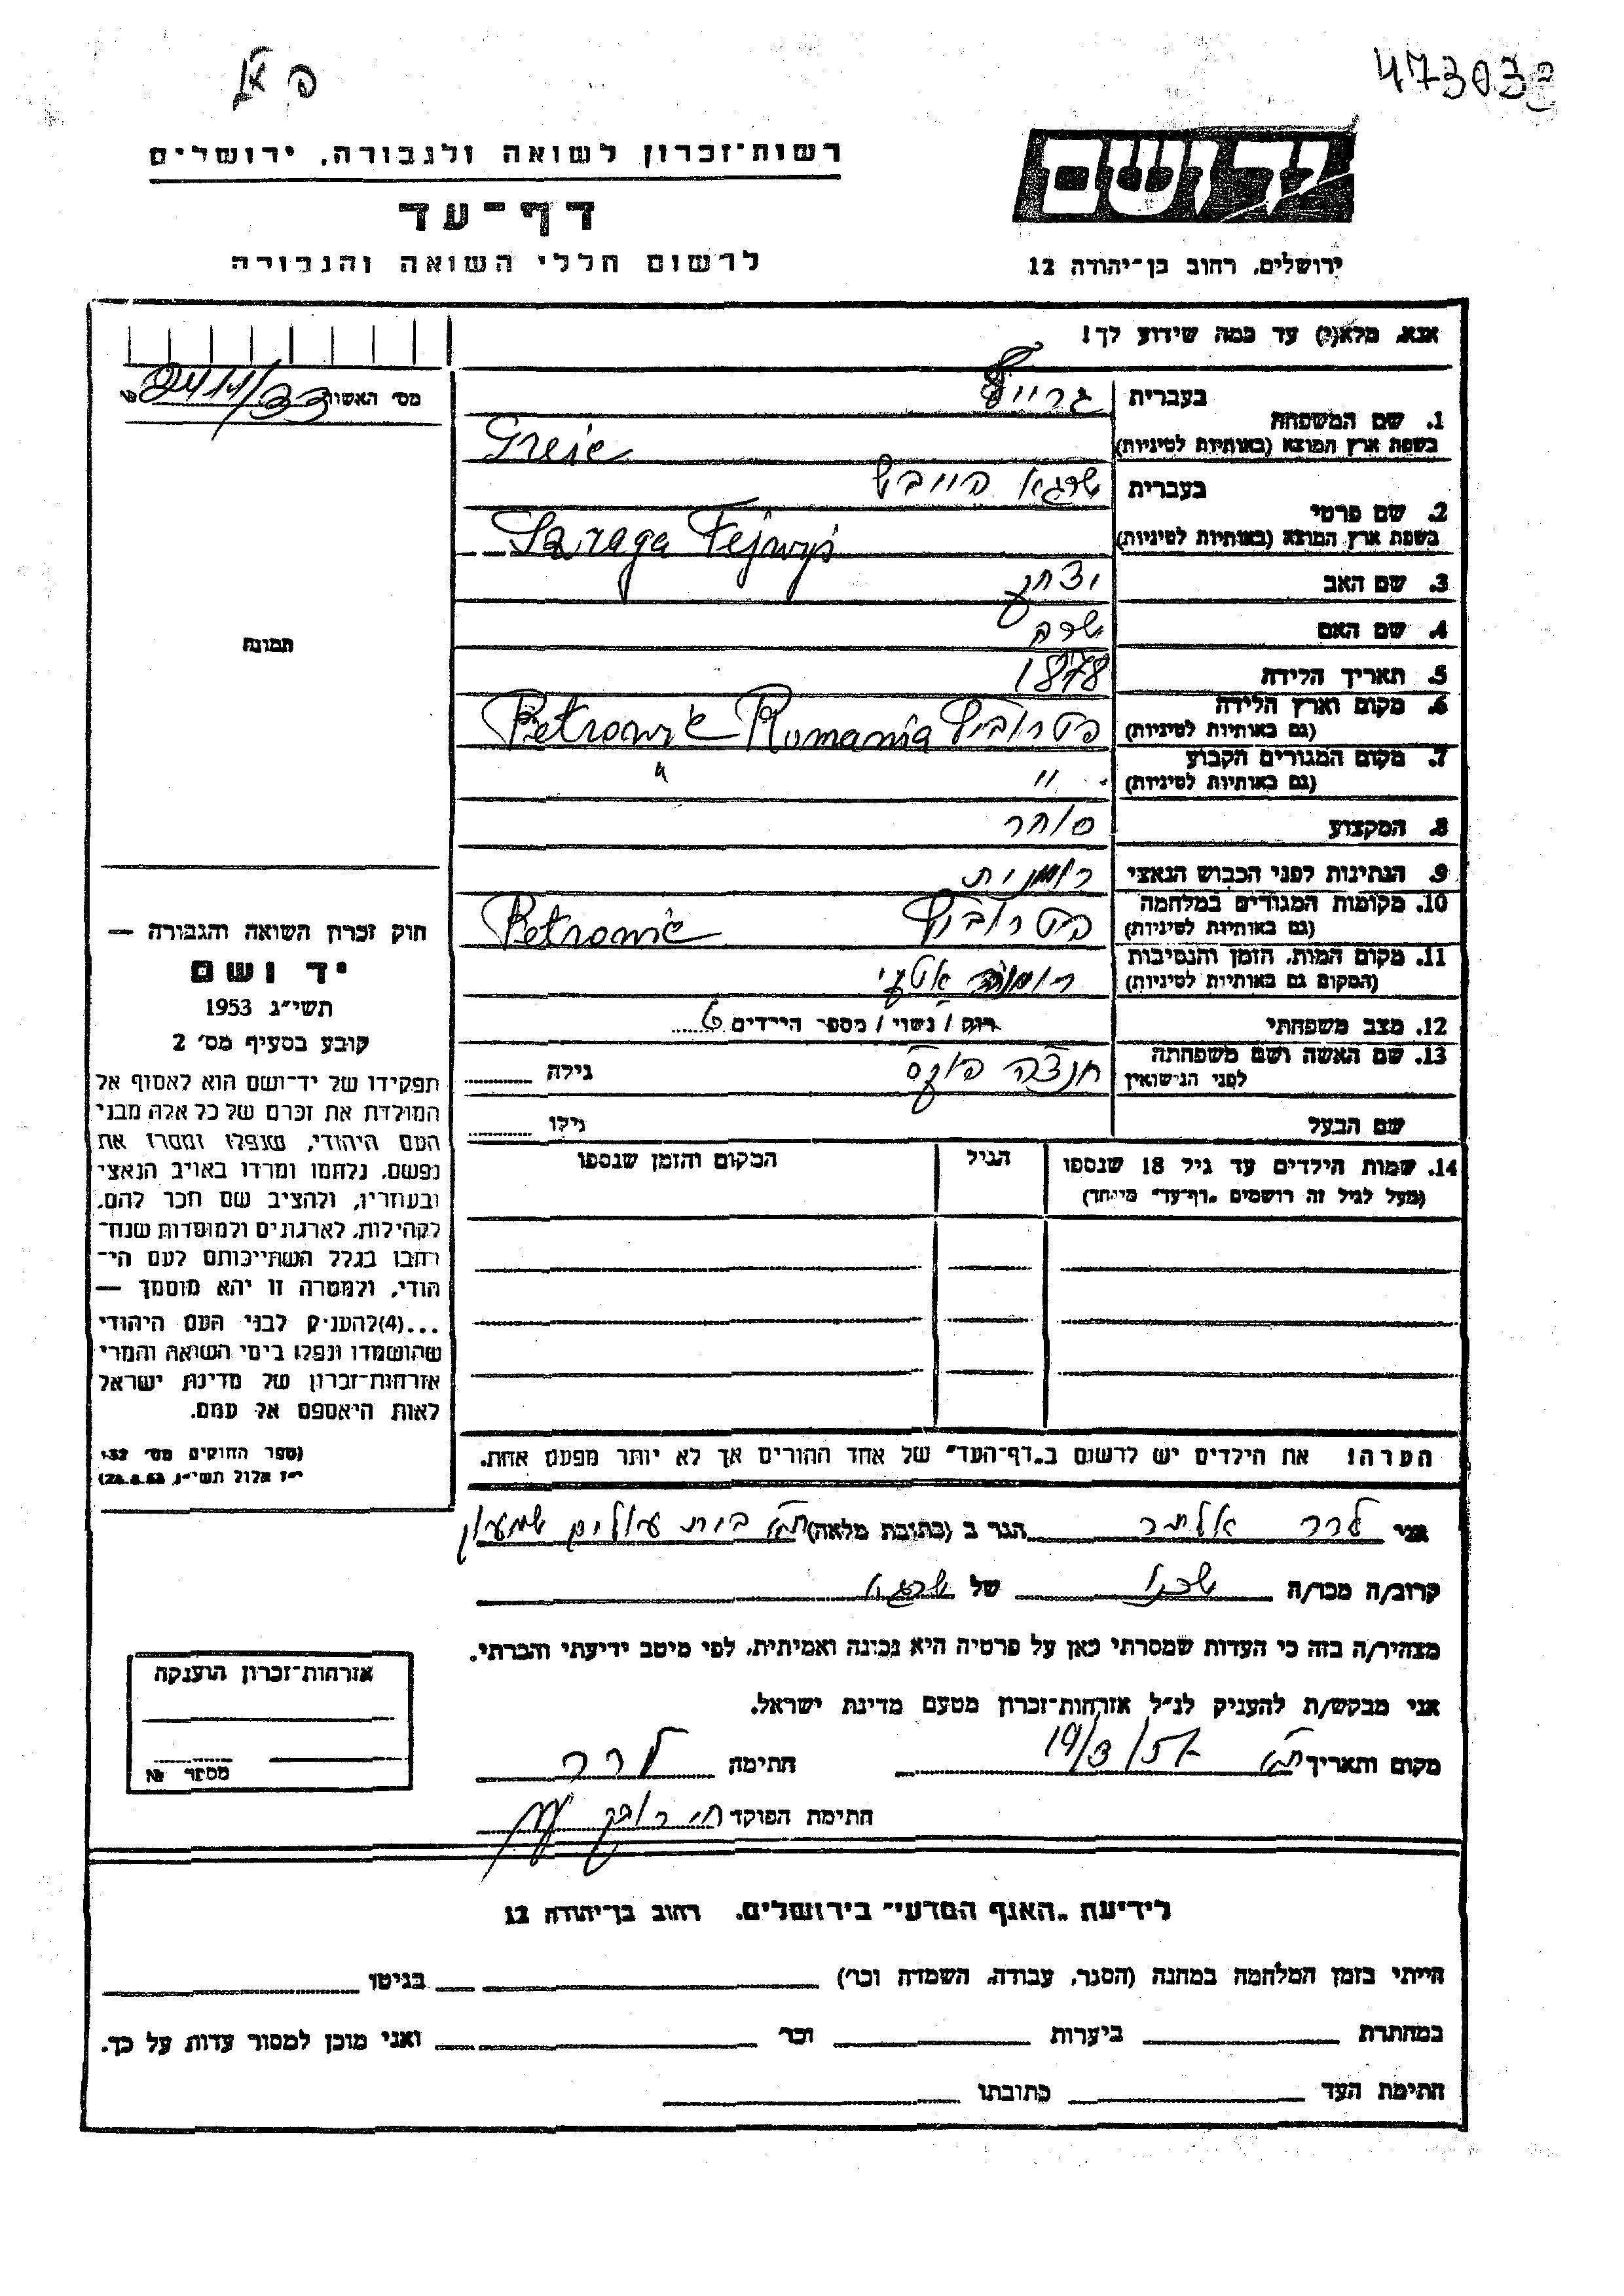 473032
רשות־זכרון לשואה ולגבורה, ירושלים
דף־עד
לרשום חללי השואה והגבורה
ידושם
ירושלים, רחוב בן־יהודה 12
אנא, מלא(י) עד כמה שידוע לך!
מס׳ האשור
1. שם המשפחה
בעברית
בשפת ארץ המוצא (באותיות לטיניות)
Greic
2. שם פרטי
בעברית שרגא פייבש
בשפת ארץ המוצא (באותיות לטיניות)
3. שם האב יצחק
4. שם האם שרה
5. תאריך הלידה 1878
6. מקום וארץ הלידה
(גם באותיות לטיניות)
Romania
7. מקום המגורים הקבוע
(גם באותיות לטיניות)
" "
8. המקצוע סוחר
9. הנתינות לפני הכבוש הנאצי רומנית
10. מקומות המגורים במלחמה
(גם באותיות לטיניות)
11. מקום המות, הזמן והנסיבות
(המקום גם באותיות לטיניות)
12. מצב משפחתי רווק / נשוי / מספר הילדים 6
13. שם האשה ושם משפחתה
לפני הנישואין
גילה
שם הבעל
גילו
14. שמות הילדים עד גיל 18 שנספו
(מעל לגיל זה רושמים „דף־עד״ מיוחד)
הגיל
המקום והזמן שנספו
הערה! את הילדים יש לרשום ב„דף־העד״ של אחד ההורים אך לא יותר מפעם אחת.
תמונה
חוק זכרון השואה והגבורה —
יד ושם
תשי״ג 1953
קובע בסעיף מס׳ 2
תפקידו של יד־ושם הוא לאסוף אל
המולדת את זכרם של כל אלה מבני
העם היהודי, שנפלו ומסרו את
נפשם, נלחמו ומרדו באויב הנאצי
ובעוזריו, ולהציב שם וזכר להם,
לקהילות, לארגונים ולמוסדות שנח־
רבו בגלל השתייכותם לעם הי־
הודי, ולמטרה זו יהא מוסמך —
...(4)להעניק לבני העם היהודי
שהושמדו ונפלו בימי השואה והמרי
אזרחות־זכרון של מדינת ישראל
לאות היאספם אל עמם.
(ספר החוקים מס׳ 132
י״ז אלול תשי״ג, 28.8.53)
אני לרר הגר ב (כתובת מלאה) בית עולים שמעון
קרוב/ה מכר/ה שכן של שרגא
מצהיר/ה בזה כי העדות שמסרתי כאן על פרטיה היא נכונה ואמיתית, לפי מיטב ידיעתי והכרתי.
אני מבקש/ת להעניק לנ״ל אזרחות־זכרון מטעם מדינת ישראל.
מקום ותאריך חתימה לרר
חתימת הפוקד
אזרחות־זכרון הוענקה
מספר №
לידיעת „האגף המדעי״ בירושלים, רחוב בן־יהודה 12
הייתי בזמן המלחמה במחנה (הסגר, עבודה, השמדה וכו׳) בגיטו
במחתרת ביערות וכו׳ ואני מוכן למסור עדות על כך.
חתימת העד כתובתו